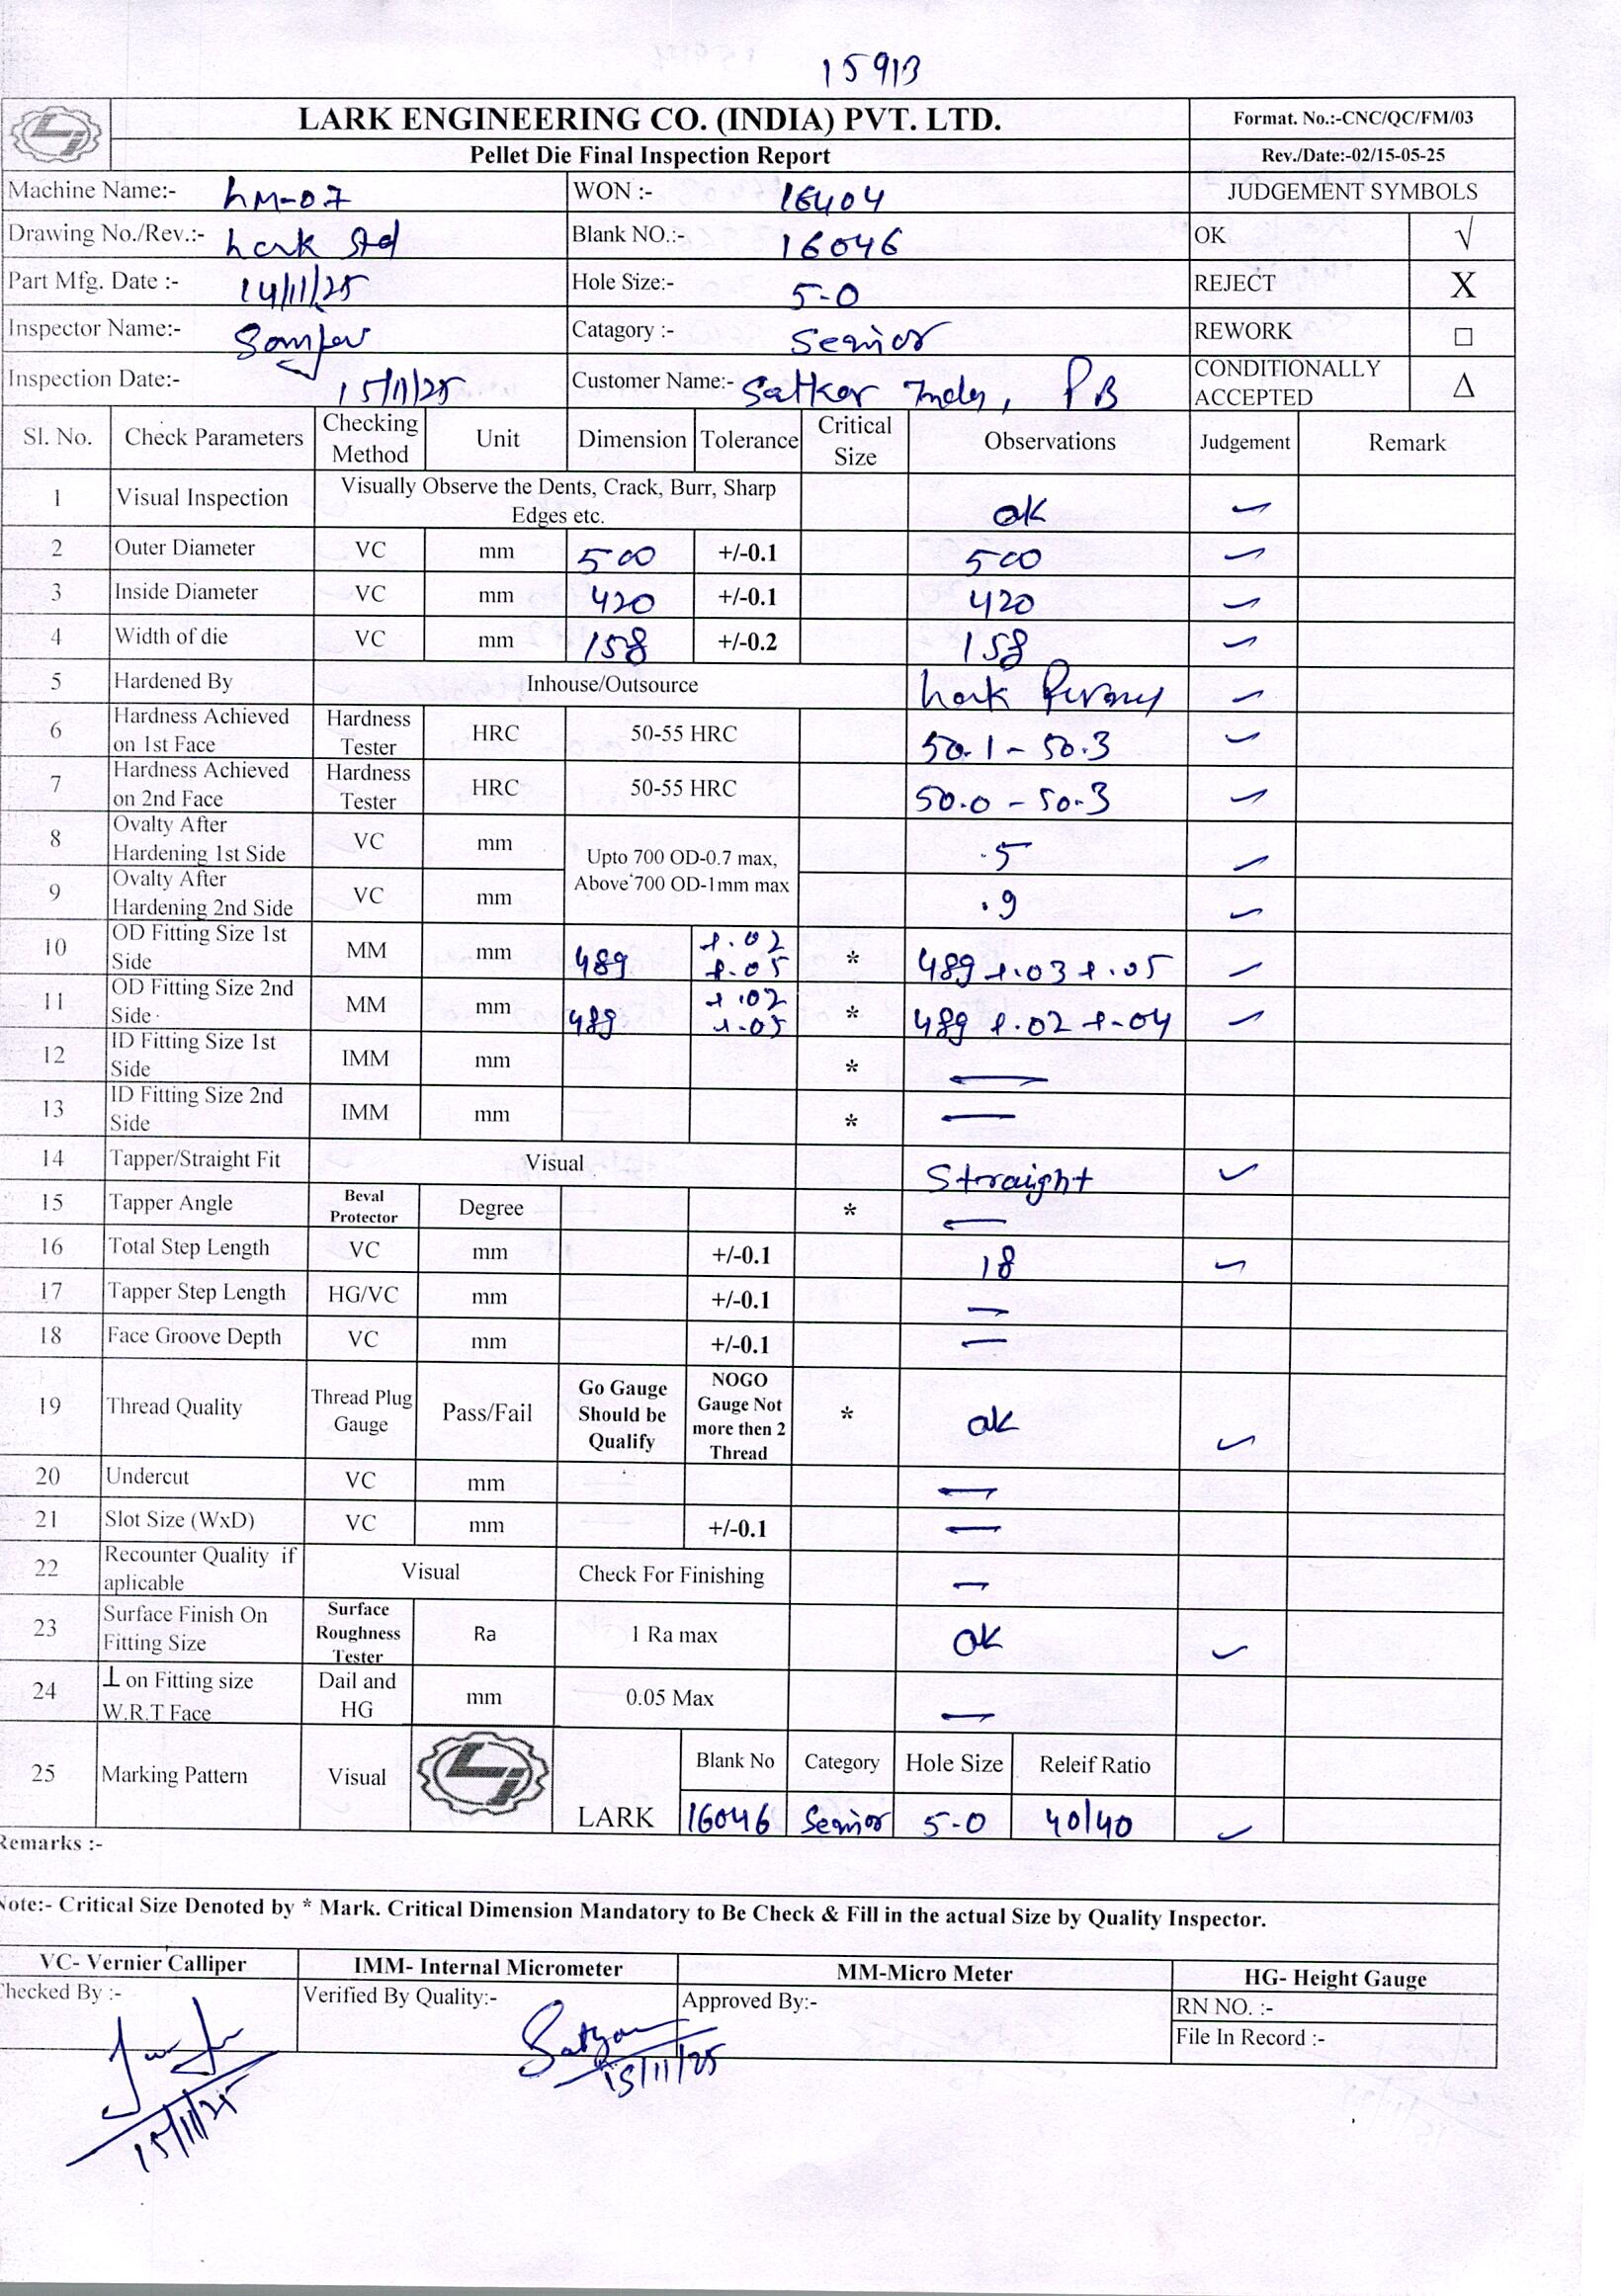 15913
LARK ENGINEERING CO. (INDIA) PVT. LTD.
Format. No.:-CNC/QC/FM/03
Pellet Die Final Inspection Report
Rev./Date:-02/15-05-25
Machine Name:- LM-07 WON :- 16404 JUDGEMENT SYMBOLS
Drawing No./Rev.:- Lark Std Blank NO.:- 16046 OK √
Part Mfg. Date :- 14/11/25 Hole Size:- 5-0 REJECT X
Inspector Name:- Catagory :- Senior REWORK □
Inspection Date:- 15/11/25 Customer Name:- Satkar Indus, PB CONDITIONALLY ACCEPTED Δ
Sl. No. Check Parameters Checking Method Unit Dimension Tolerance Critical Size Observations Judgement Remark
1 Visual Inspection Visually Observe the Dents, Crack, Burr, Sharp Edges etc. ok ✓
2 Outer Diameter VC mm 500 +/-0.1 500 ✓
3 Inside Diameter VC mm 420 +/-0.1 420 ✓
4 Width of die VC mm 158 +/-0.2 158 ✓
5 Hardened By Inhouse/Outsource Lark ✓
6 Hardness Achieved on 1st Face Hardness Tester HRC 50-55 HRC 50.1 - 50.3 ✓
7 Hardness Achieved on 2nd Face Hardness Tester HRC 50-55 HRC 50.0 - 50.3 ✓
8 Ovalty After Hardening 1st Side VC mm Upto 700 OD-0.7 max, Above 700 OD-1mm max .5 ✓
9 Ovalty After Hardening 2nd Side VC mm .9 ✓
10 OD Fitting Size 1st Side MM mm 489 +.02 +.05 * 489 +.03 +.05 ✓
11 OD Fitting Size 2nd Side MM mm 489 +.02 +.05 * 489 +.02 +.04 ✓
12 ID Fitting Size 1st Side IMM mm * —
13 ID Fitting Size 2nd Side IMM mm * —
14 Tapper/Straight Fit Visual Straight ✓
15 Tapper Angle Beval Protector Degree * —
16 Total Step Length VC mm +/-0.1 18 ✓
17 Tapper Step Length HG/VC mm +/-0.1 —
18 Face Groove Depth VC mm +/-0.1 —
19 Thread Quality Thread Plug Gauge Pass/Fail Go Gauge Should be Qualify NOGO Gauge Not more then 2 Thread * ok ✓
20 Undercut VC mm —
21 Slot Size (WxD) VC mm +/-0.1 —
22 Recounter Quality if aplicable Visual Check For Finishing —
23 Surface Finish On Fitting Size Surface Roughness Tester Ra 1 Ra max ok ✓
24 ⊥ on Fitting size W.R.T Face Dail and HG mm 0.05 Max —
25 Marking Pattern Visual LARK Blank No Category Hole Size Releif Ratio
16046 Senior 5-0 40/40 ✓
Remarks :-
Note:- Critical Size Denoted by * Mark. Critical Dimension Mandatory to Be Check & Fill in the actual Size by Quality Inspector.
VC- Vernier Calliper IMM- Internal Micrometer MM-Micro Meter HG- Height Gauge
Checked By :- Verified By Quality:- Approved By:- RN NO. :-
File In Record :-
Satyam
15/11/25
15/11/25